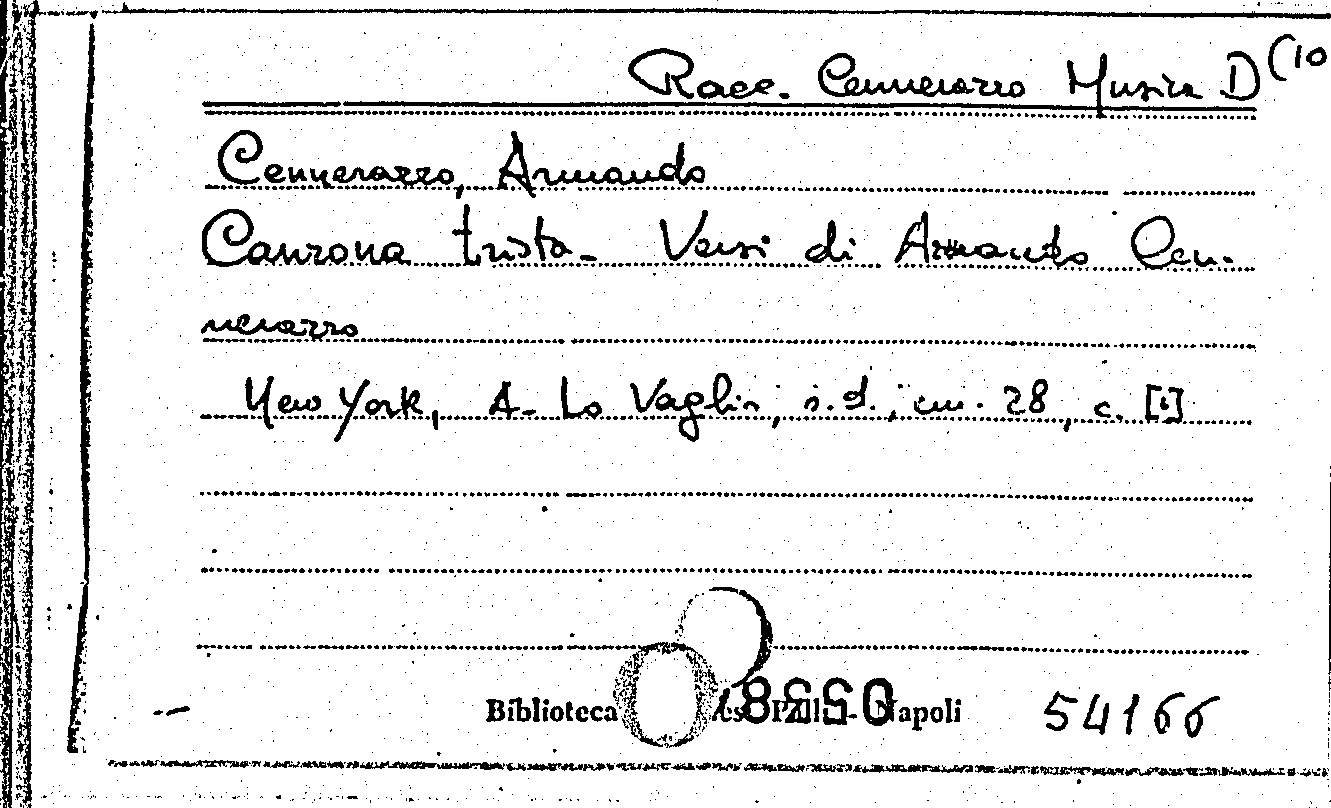 Racc. Cennerazzo Musica D (10
Cennerazzo, Armando
Canzona trista - Versi di Armando Cen-
nerazzo
New York, A. Lo Vaglio, s.d., cm. 28, c. [1]
Biblioteca Napoli 54166